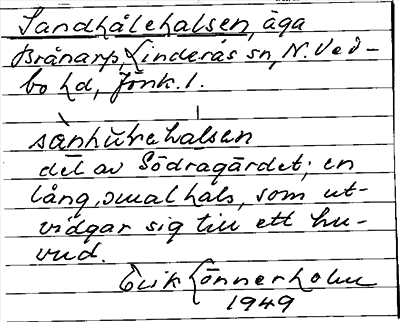 Sandhålehalsen, äga
Brånarp, Linderås sn, N. Ved-
bo hd, Jönk. l.
sànhúrehalsen
del av Södragärdet; en
lång, smal hals, som ut-
vidgar sig till ett hu-
vud.
Erik Lönnerholm
1949